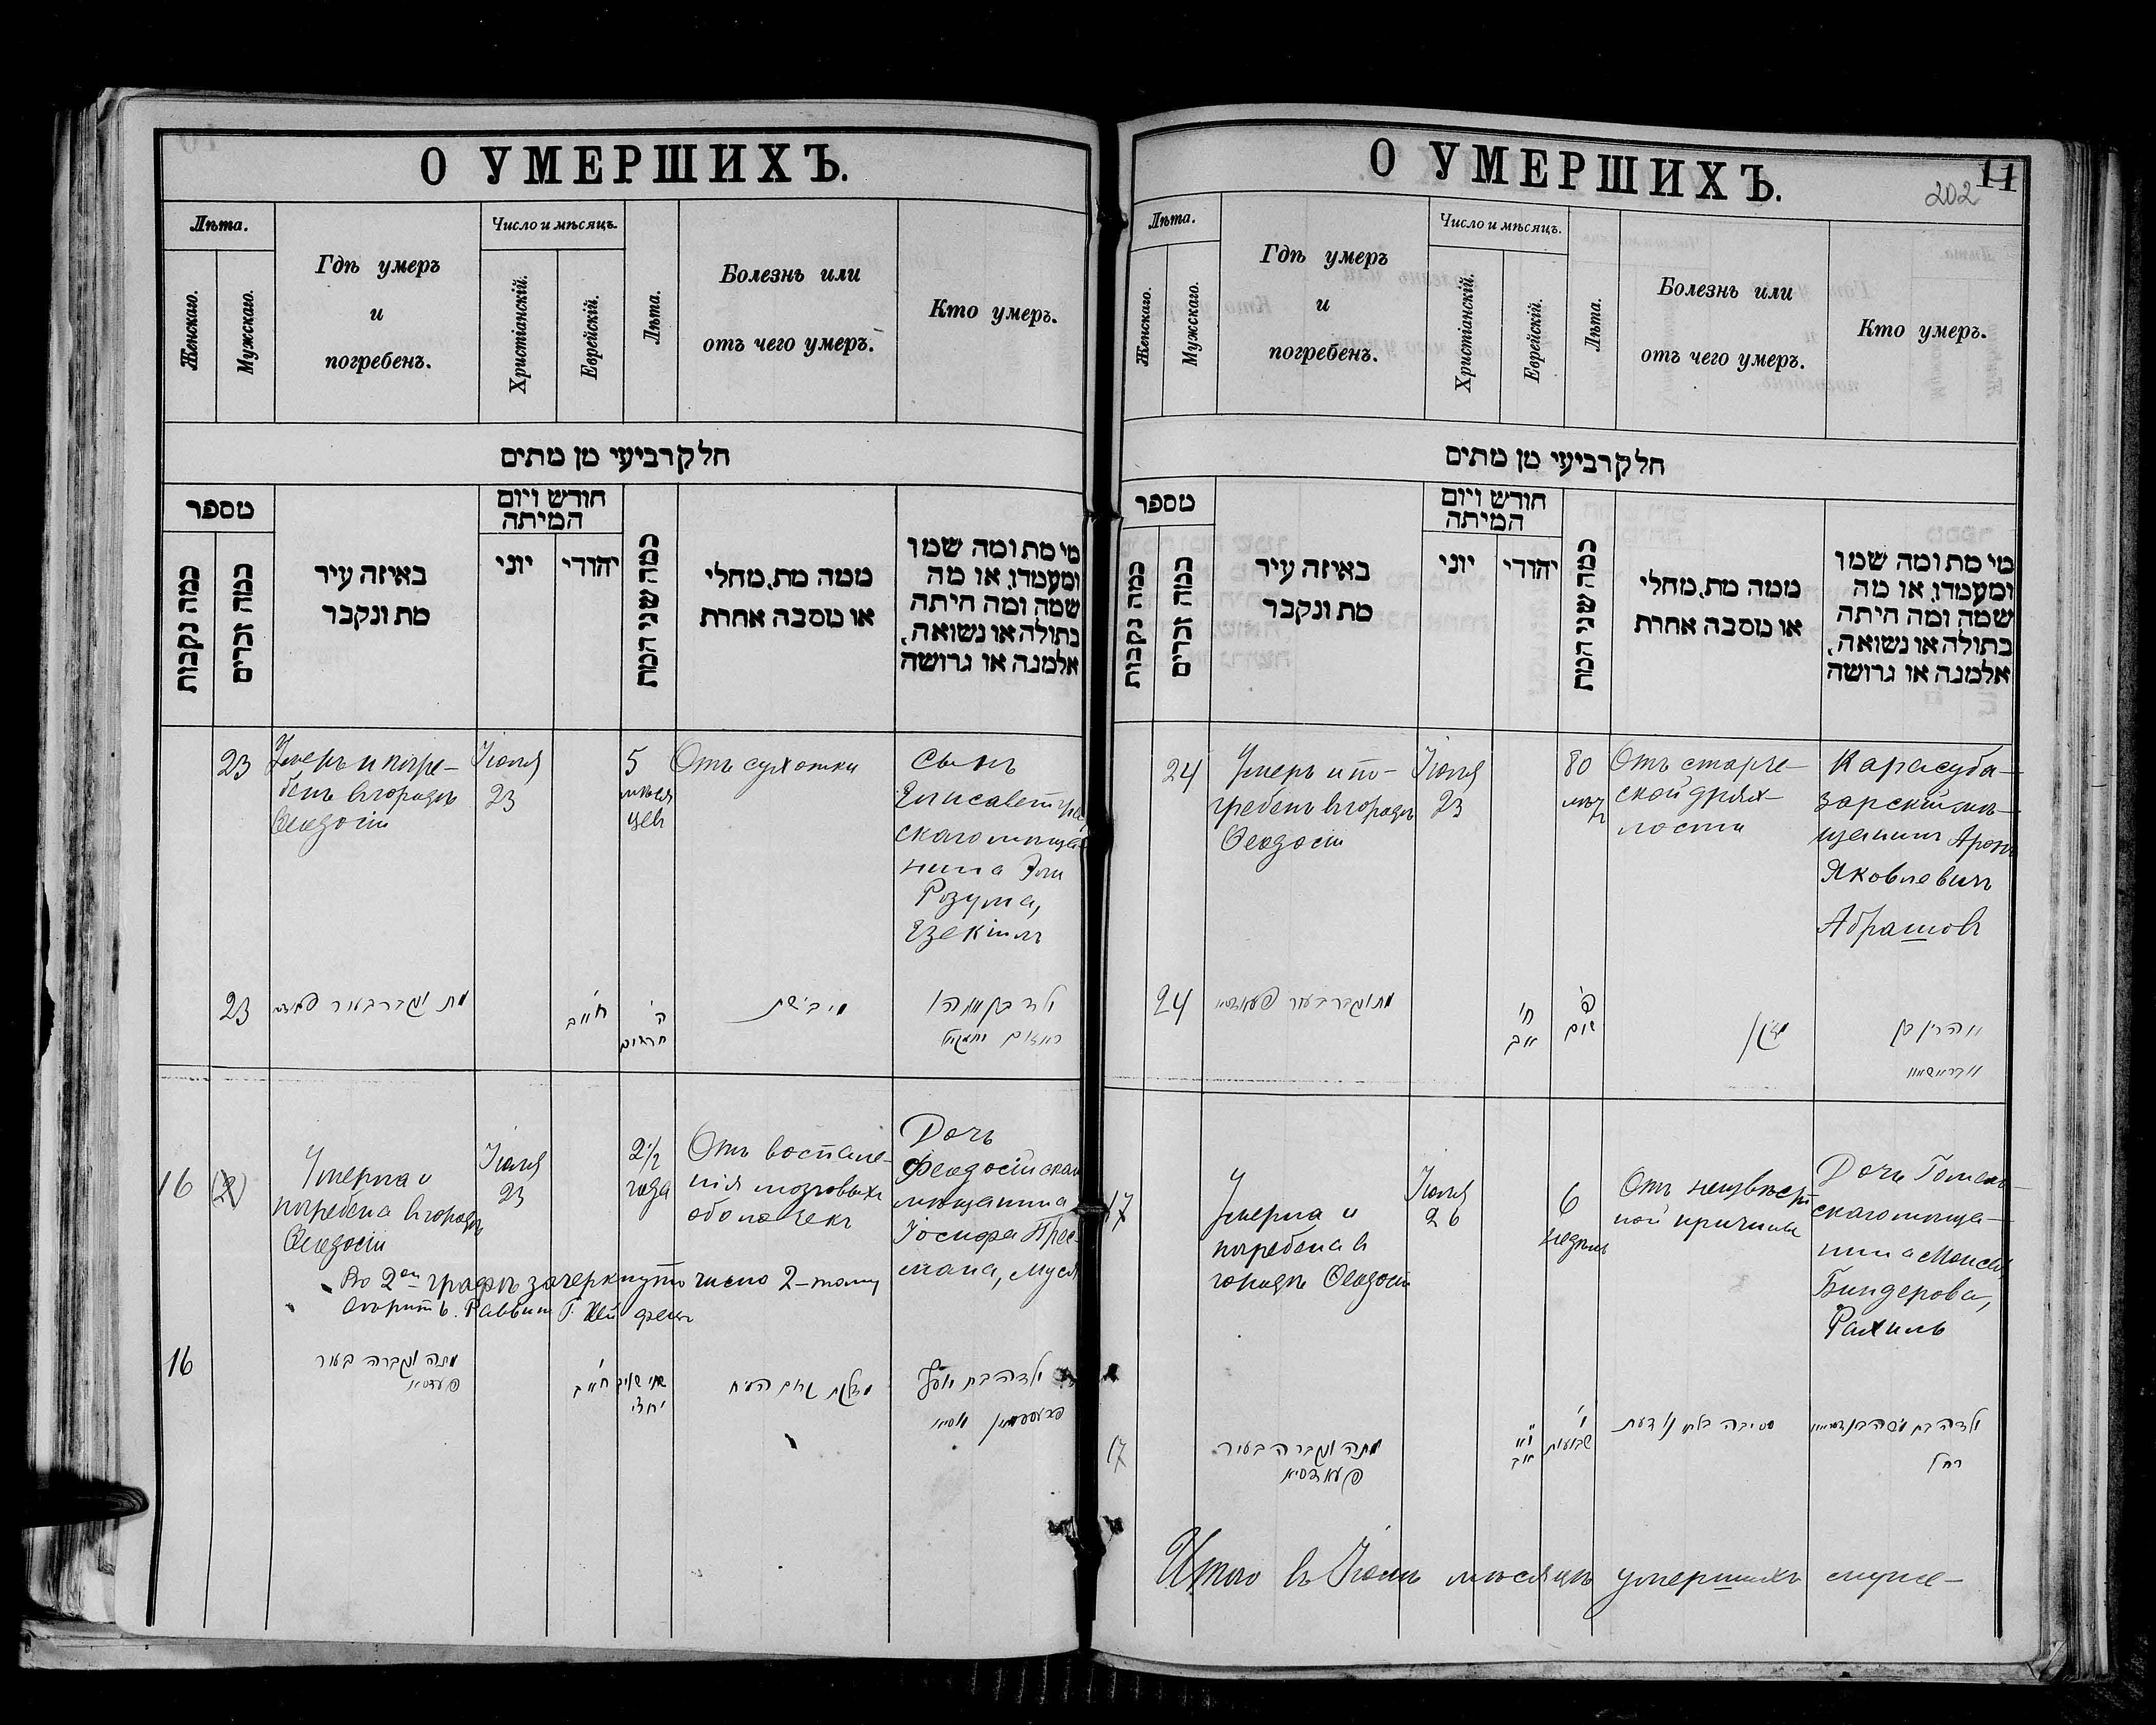 О УМЕРШИХЪ.
Лѣта.
Женскаго.
Мужскаго.
Гдѣ умеръ
и
погребенъ.
Число и мѣсяцъ.
Христіанскій.
Еврейскій.
Лѣта.
Болезнь или
отъ чего умеръ.
Кто умеръ.
חלק רביעי מן מתים
מספר
כמה נקבות
כמה זכרים
באיזה עיר
מת ונקבר
חודש ויום
המיתה
יוני
יהודי
כמה שני המת
ממה מת, מחלי
או מסבה אחרת
מי מת ומה שמו
ומעמדו, או מה
שמה ומה היתה
בתולה או נשואה,
אלמנה או גרושה
23
Умеръ и погре-
бенъ в городѣ
Ѳеодосіи
Іюля
23
5
мѣся
цев
Отъ сухотки
Сынъ
Елисаветгра
скаго мѣща-
нина
Розума,
Езекіиль
23
מת ונקבר בעיר
ה'
חדשים
ילד בן
16 (2)
Умерла и
погребена в городѣ
Ѳеодосіи
Іюля
23
2 1/2
года
Отъ воспале-
нія мозговыхъ
оболочекъ
Дочь
Феодосійскаго
мѣщанина
Іосифа Прес-
мана, Муся
Во 2ой графѣ зачеркнуто число 2 - тому
вѣрить. Раввинъ Г.
16
מתה ונקברה בעיר
שתי שנים
וחצי
ילדה בת יוסף
О УМЕРШИХЪ.
202
11
Лѣта.
Женскаго.
Мужскаго.
Гдѣ умеръ
и
погребенъ.
Число и мѣсяцъ.
Христіанскій.
Еврейскій.
Лѣта.
Болезнь или
отъ чего умеръ.
Кто умеръ.
חלק רביעי מן מתים
מספר
כמה נקבות
כמה זכרים
באיזה עיר
מת ונקבר
חודש ויום
המיתה
יוני
יהודי
כמה שני המת
ממה מת, מחלי
או מסבה אחרת
מי מת ומה שמו
ומעמדו, או מה
שמה ומה היתה
בתולה או נשואה,
אלמנה או גרושה
24
Умеръ и по-
гребенъ в городѣ
Ѳеодосіи
Іюля
23
80
лѣтъ
Отъ старче-
ской дрях-
лости
Карасуба-
зарскій мѣ-
щанинъ Аронъ
Яковлевичъ
Абрашовъ
24
מת ונקבר בעיר
פ'
שנים
זקן
אהרן בן
17
Умерла и
погребена в
городѣ Ѳеодосіи
Іюля
26
6
недѣль
Отъ неизвѣст
ной причины
Дочь Гомель-
скаго мѣща-
нина Моисея
Биндерова,
Рахиль
17
מתה ונקברה בעיר
פעאדסיא
ו'
שבועות
מסיבה בלתי נודעת
ילדה בת משה
רחל
Итого въ Іюлѣ мѣсяцѣ умершихъ муже-